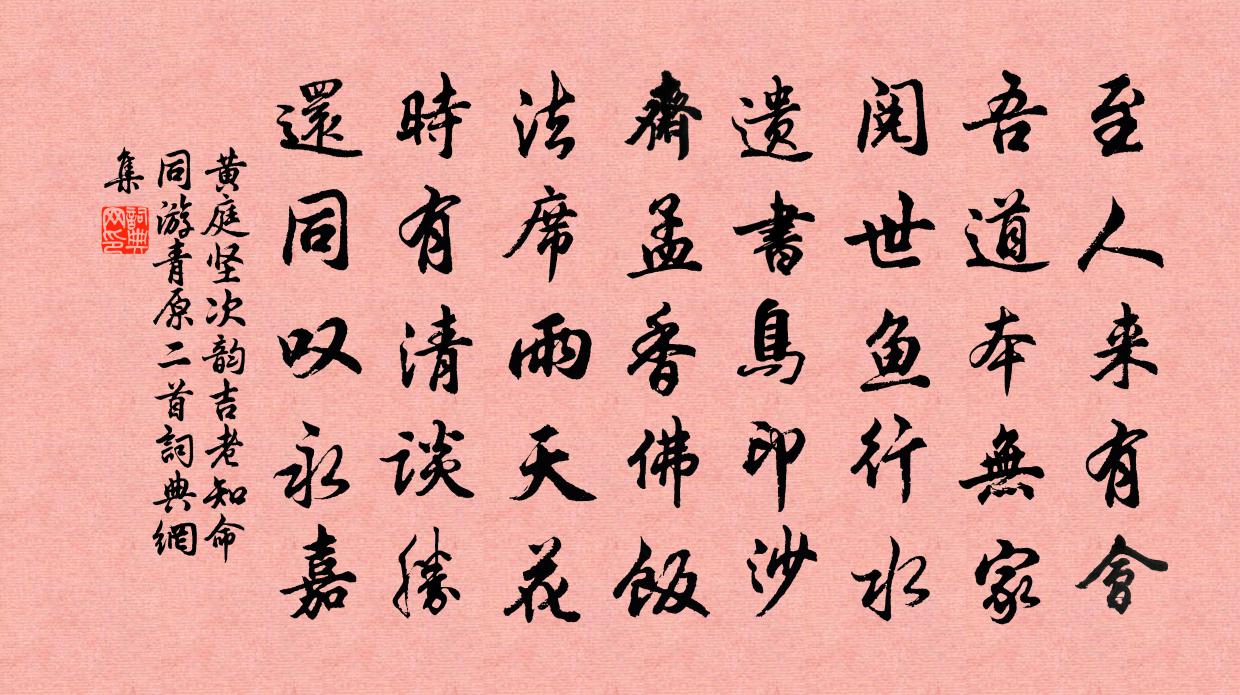 至人来有會
吾道本無家
閱世鱼行水
遗書鳥印沙
齋盂香佛飯
法席雨天花
時有清談勝
還同叹永嘉
黄庭坚次韵吉老知命
同游青原二首詞典網
集
詞典
网印